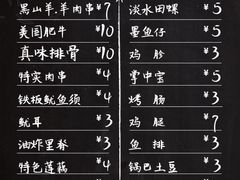 黑山羊.羊肉串 ¥7
美国肥牛 ¥10
真味排骨 ¥10
特实肉串 ¥4
铁板鱿鱼须 ¥4
鱿耳 ¥3
油炸里脊 ¥3
特色莲藕 ¥4
淡水田螺 ¥5
墨鱼仔 ¥5
鸡胗 ¥3
掌中宝 ¥5
烤肠 ¥3
鸡腿 ¥7
鱼排 ¥3
锅巴土豆 ¥3